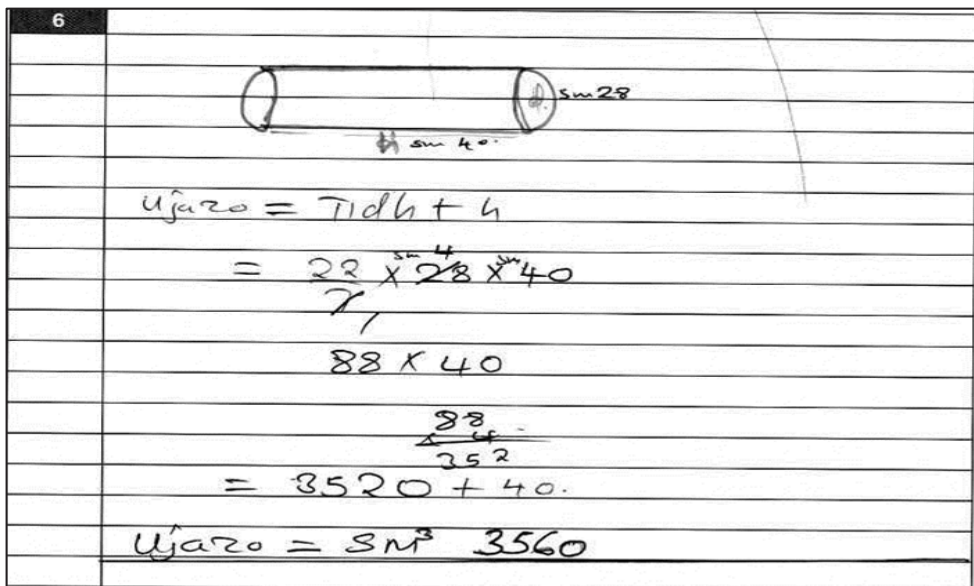 6
d. sm 28
sm 40.
Ujazo = πdh + h
= 22/7 × sm 28 4 × sm 40
88 × 40
88
× 4
352
= 3520 + 40.
Ujazo = SM³ 3560